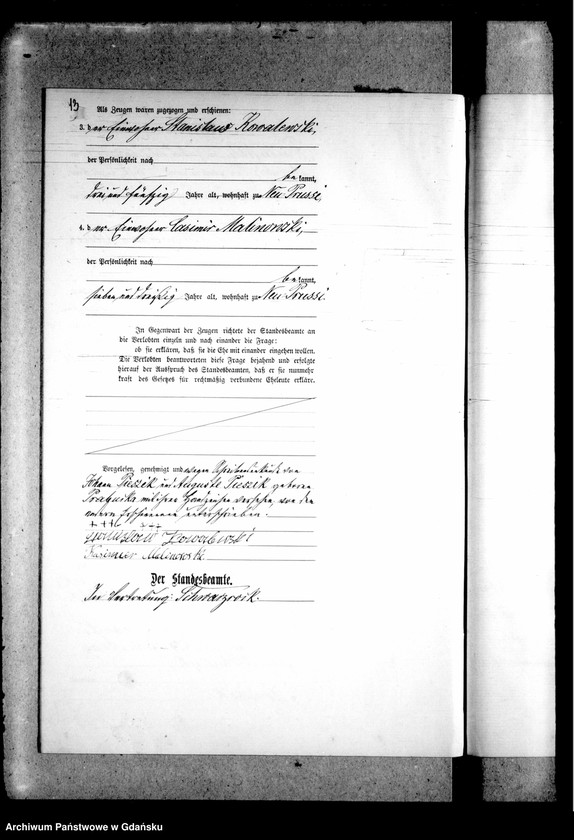 13
Als Zeugen waren zugezogen und erschienen:
3. der Einwohner Stanislaus Kowalewski,
der Persönlichkeit nach
bekannt,
drei und fünfzig Jahre alt, wohnhaft zu Neu Prussi,
4. der Einwohner Casimir Malinowski,
der Persönlichkeit nach
bekannt,
sieben und dreißig Jahre alt, wohnhaft zu Neu Prussi.
In Gegenwart der Zeugen richtete der Standesbeamte an
die Verlobten einzeln und nach einander die Frage:
ob sie erklären, daß sie die Ehe mit einander eingehen wollen.
Die Verlobten beantworteten diese Frage bejahend und erfolgte
hierauf der Ausspruch des Standesbeamten, daß er sie nunmehr
kraft des Gesetzes für rechtmäßig verbundene Eheleute erkläre.
Vorgelesen, genehmigt und wegen Schreibensunkunde von
Johann Puszik und Auguste Puszik geborene
mit ihren Handzeichen versehen, von den
andern Erschienenen unterschrieben.
+++ +++
Kowalewski
Kasimier Malinowski
Der Standesbeamte.
In Vertretung:
Archiwum Państwowe w Gdańsku